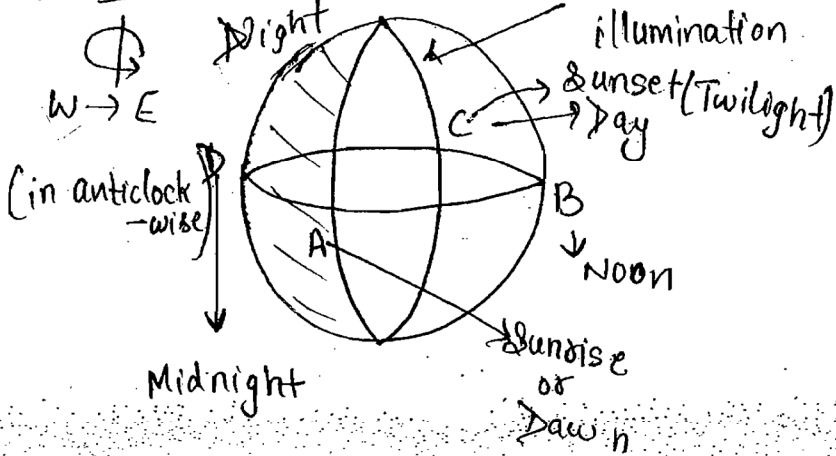 Night
illumination
W → E
Sunset (Twilight)
Day
C
D
(in anticlock
-wise)
B
A
Noon
Midnight
Sunrise
or
Dawn